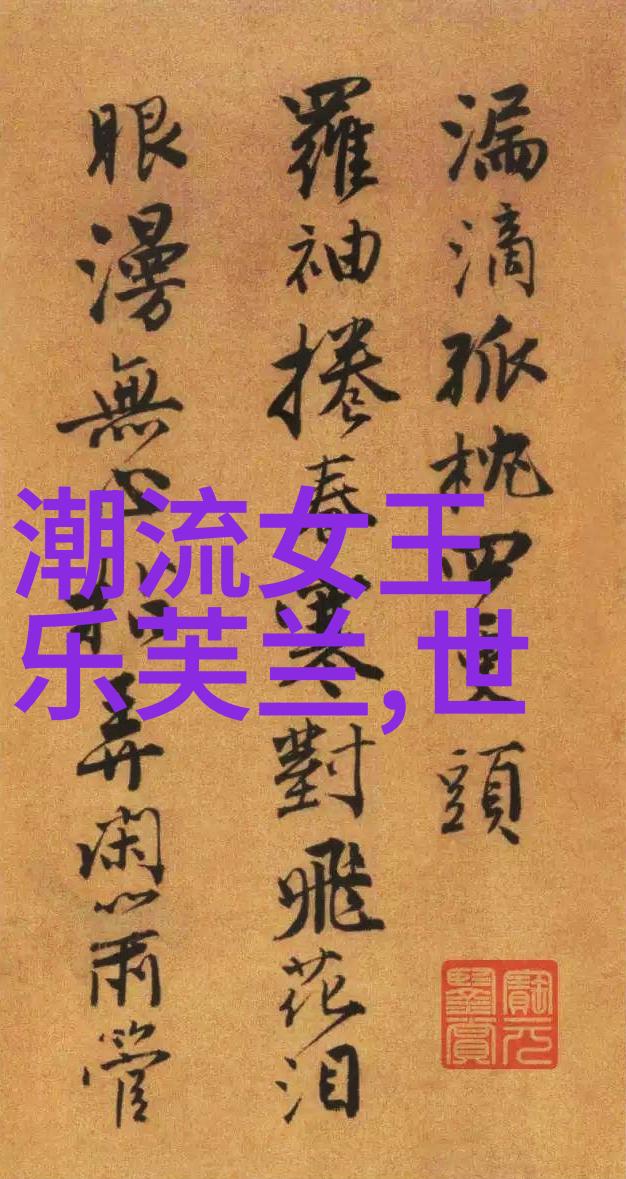 漏滴孤枕四更頭
羅袖捲春寒對飛花泪
眼漫無心弄閑管
潮流女王
乐芙兰,世